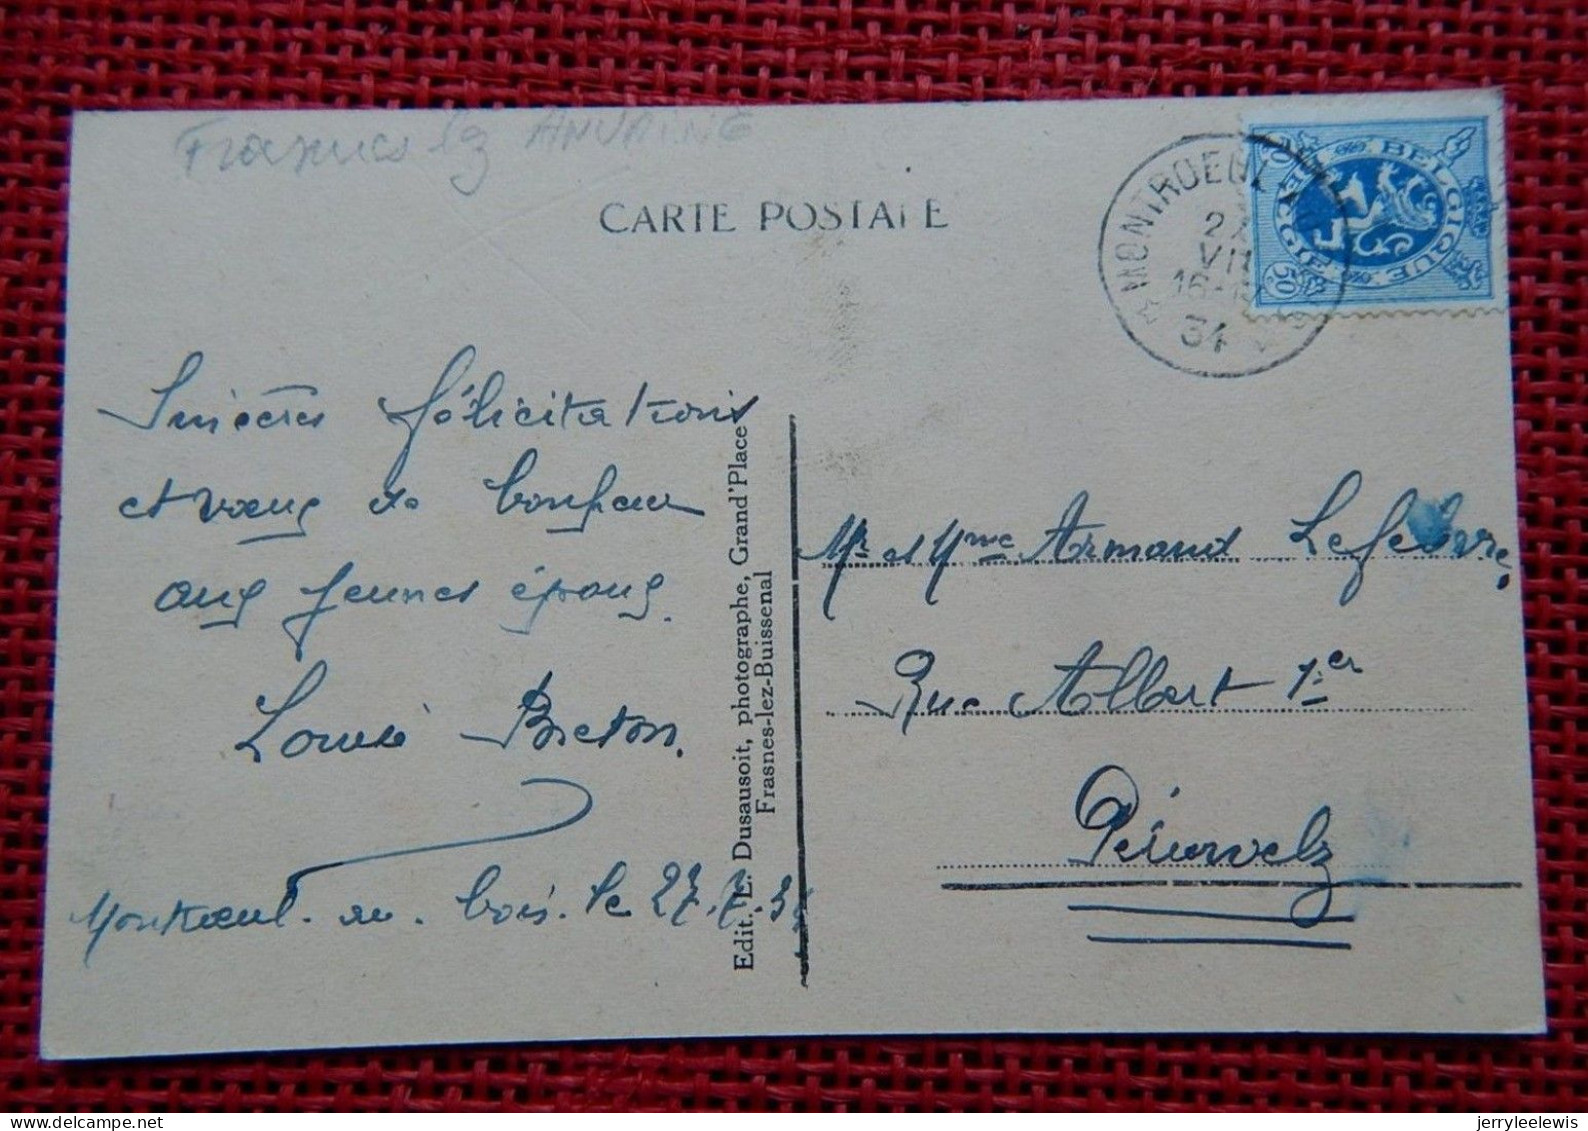 Frasnes lez ANVAING
CARTE POSTALE
MONTROEUL
27
VII
16-17
34
BELGIQUE
BELGIE
50
Sincères félicitations
et vœux de bonheur
aux jeunes époux.
Louise Breton.
Montrœul-au-bois-le 27.7.34
Edit. E. Dusausoit, photographe, Grand'Place
Frasnes-lez-Buissenal
Mr et Mme Armand Lefebvre.
Rue Albert 1er
Péruwelz
jerryleelewis